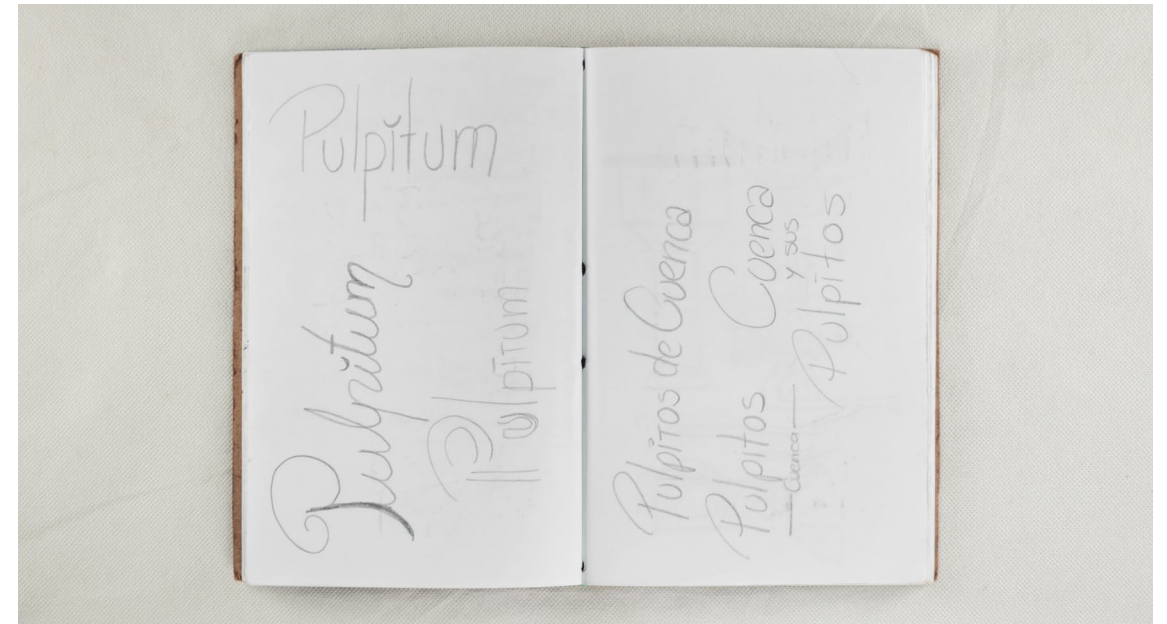 Pulpitum
Pulpitum
Pulpitum
Pulpitos de Cuenca
Pulpitos
Cuenca
Cuenca
y sus
Pulpitos